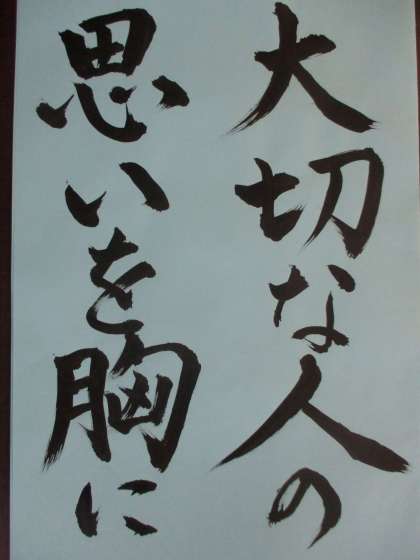 大切な人の
思いを胸に